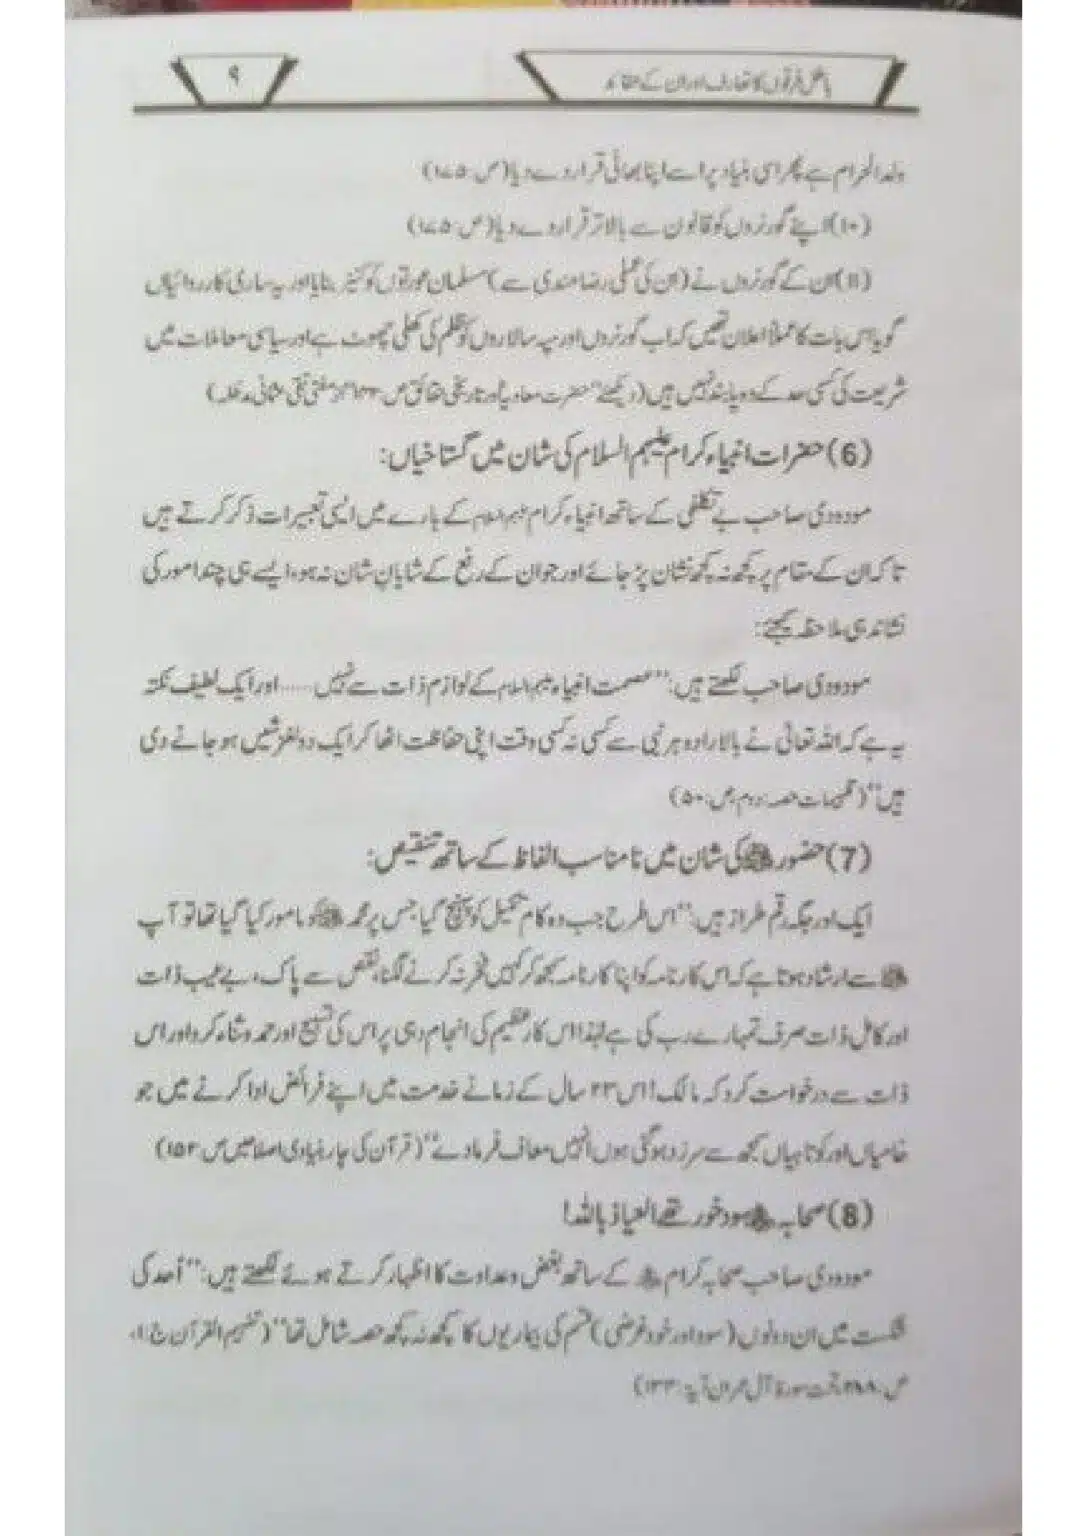 باطل فرقوں کا تعارف اور ان کے عقائد
۹
ولد الحرام ہے پھر اسی بنیاد پر اسے اپنا بھائی قرار دے دیا (ص:۱۷۵)
(۱۰) اپنے گورنروں کو قانون سے بالاتر قرار دے دیا (ص:۱۷۵)
(۱۱) ان کے گورنروں نے (ان کی عملی رضامندی سے) مسلمان عورتوں کو کنیز بنایا اور یہ ساری کارروائیاں
گویا اس بات کا عملاً اعلان تھیں کہ اب گورنروں اور سپہ سالاروں کو ظلم کی کھلی چھوٹ ہے اور سیاسی معاملات میں
شریعت کی کسی حد کے وہ پابند نہیں ہیں (دیکھئے "حضرت معاویہ اور تاریخی حقائق ص از مفتی تقی عثمانی مدظلہ)
(6) حضرات انبیاء کرام علیہم السلام کی شان میں گستاخیاں:
مودودی صاحب بے تکلفی کے ساتھ انبیاء کرام علیہم السلام کے بارے میں ایسی تعبیرات ذکر کرتے ہیں
تاکہ ان کے مقام پر کچھ نہ کچھ نشان پڑ جائے اور جو ان کے رفع کے شایانِ شان نہ ہو، ایسے ہی چند امور کی
نشاندہی ملاحظہ کیجئے:
مودودی صاحب لکھتے ہیں: "عصمت انبیاء علیہم السلام کے لوازم ذات سے نہیں...... اور ایک لطیف نکتہ
یہ ہے کہ اللہ تعالیٰ نے بالارادہ ہر نبی سے کسی نہ کسی وقت اپنی حفاظت اٹھا کر ایک دو لغزشیں ہو جانے دی
ہیں" (تفہیمات حصہ دوم، ص:۵۰)
(7) حضور ﷺ کی شان میں نامناسب الفاظ کے ساتھ تنقیص:
ایک اور جگہ رقم طراز ہیں: "اس طرح جب وہ کام تکمیل کو پہنچ گیا جس پر محمد ﷺ کو مامور کیا گیا تھا تو آپ
ﷺ سے ارشاد ہوتا ہے کہ اس کارنامہ کو اپنا کارنامہ سمجھ کر کہیں فخر نہ کرنے لگنا، نقص سے پاک، بے عیب ذات
اور کامل ذات صرف تمہارے رب کی ہے لہٰذا اس کار عظیم کی انجام دہی پر اس کی تسبیح اور حمد و ثناء کرو اور اس
ذات سے درخواست کرو کہ مالک! اس ۲۳ سال کے زمانے خدمت میں اپنے فرائض ادا کرنے میں جو
خامیاں اور کوتاہیاں مجھ سے سرزد ہو گئی ہوں انہیں معاف فرما دے" (قرآن کی چار بنیادی اصلاحیں ص:۱۵۲)
(8) صحابہ ؓ سود خور تھے العیاذ باللہ!
مودودی صاحب صحابہ کرام ؓ کے ساتھ بغض و عداوت کا اظہار کرتے ہوئے لکھتے ہیں: "اُحد کی
شکست میں ان دونوں (سود اور خود غرضی) قسم کی بیماریوں کا کچھ نہ کچھ حصہ شامل تھا" (تفہیم القرآن ج:۱،
ص:۲۸۸، تحت سورۃ آل عمران آیۃ:۱۳۳)